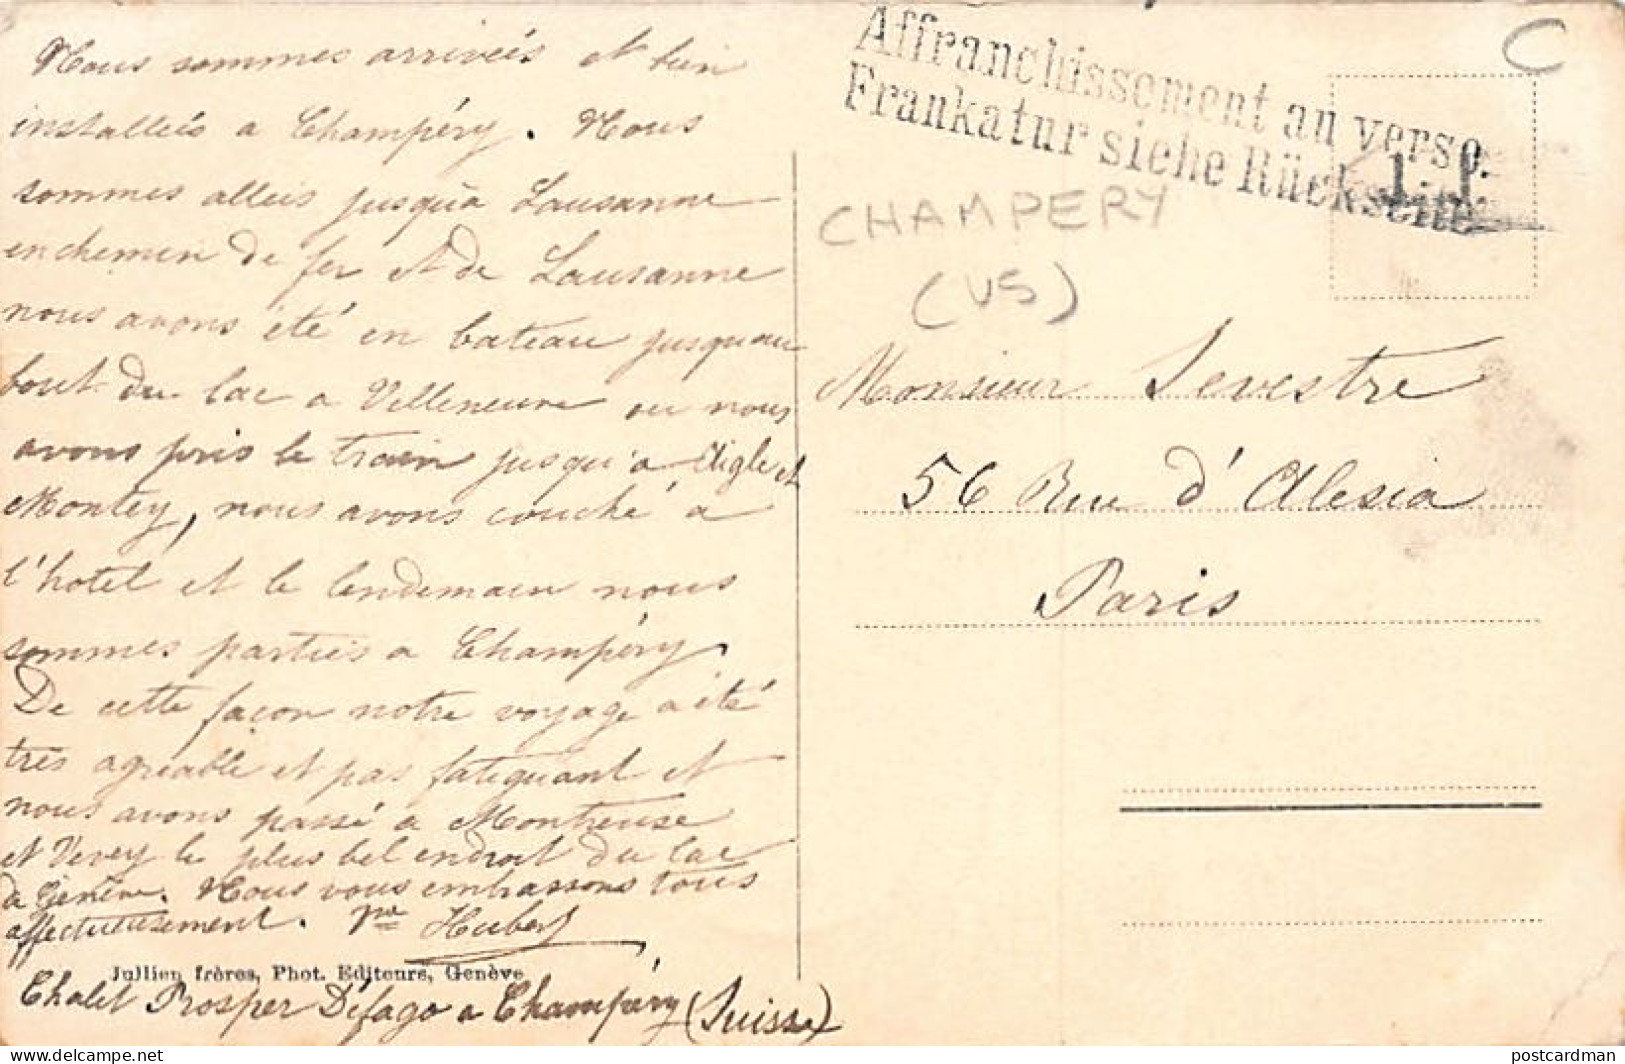 Nous sommes arrivés et bien
installés a Champéry. Nous
sommes allés jusqu'à Lausanne
en chemin de fer et de Lausanne
nous avons été en bateau jusqu'au
bout du lac a Villeneuve ou nous
avons pris le train jusqu'a Aigle et
Montey, nous avons couché à
l'hotel et le lendemain nous
sommes partis a Champéry.
De cette façon notre voyage a été
très agréable et pas fatiguant et
nous avons passé a Montreuse
et Vevey le plus bel endroit du lac
de Genève. Nous vous embrassons tous
affectueusement. Hubert
Jullien frères, Phot. Editeurs, Genève
Chalet Prosper Défago a Champéry (Suisse)
Affranchissement au verso.
Frankatur siehe Rückseite
C
CHAMPERY
(VS)
Monsieur Sevestre
56 Rue d'Alesia
Paris
postcardman
delcampe.net